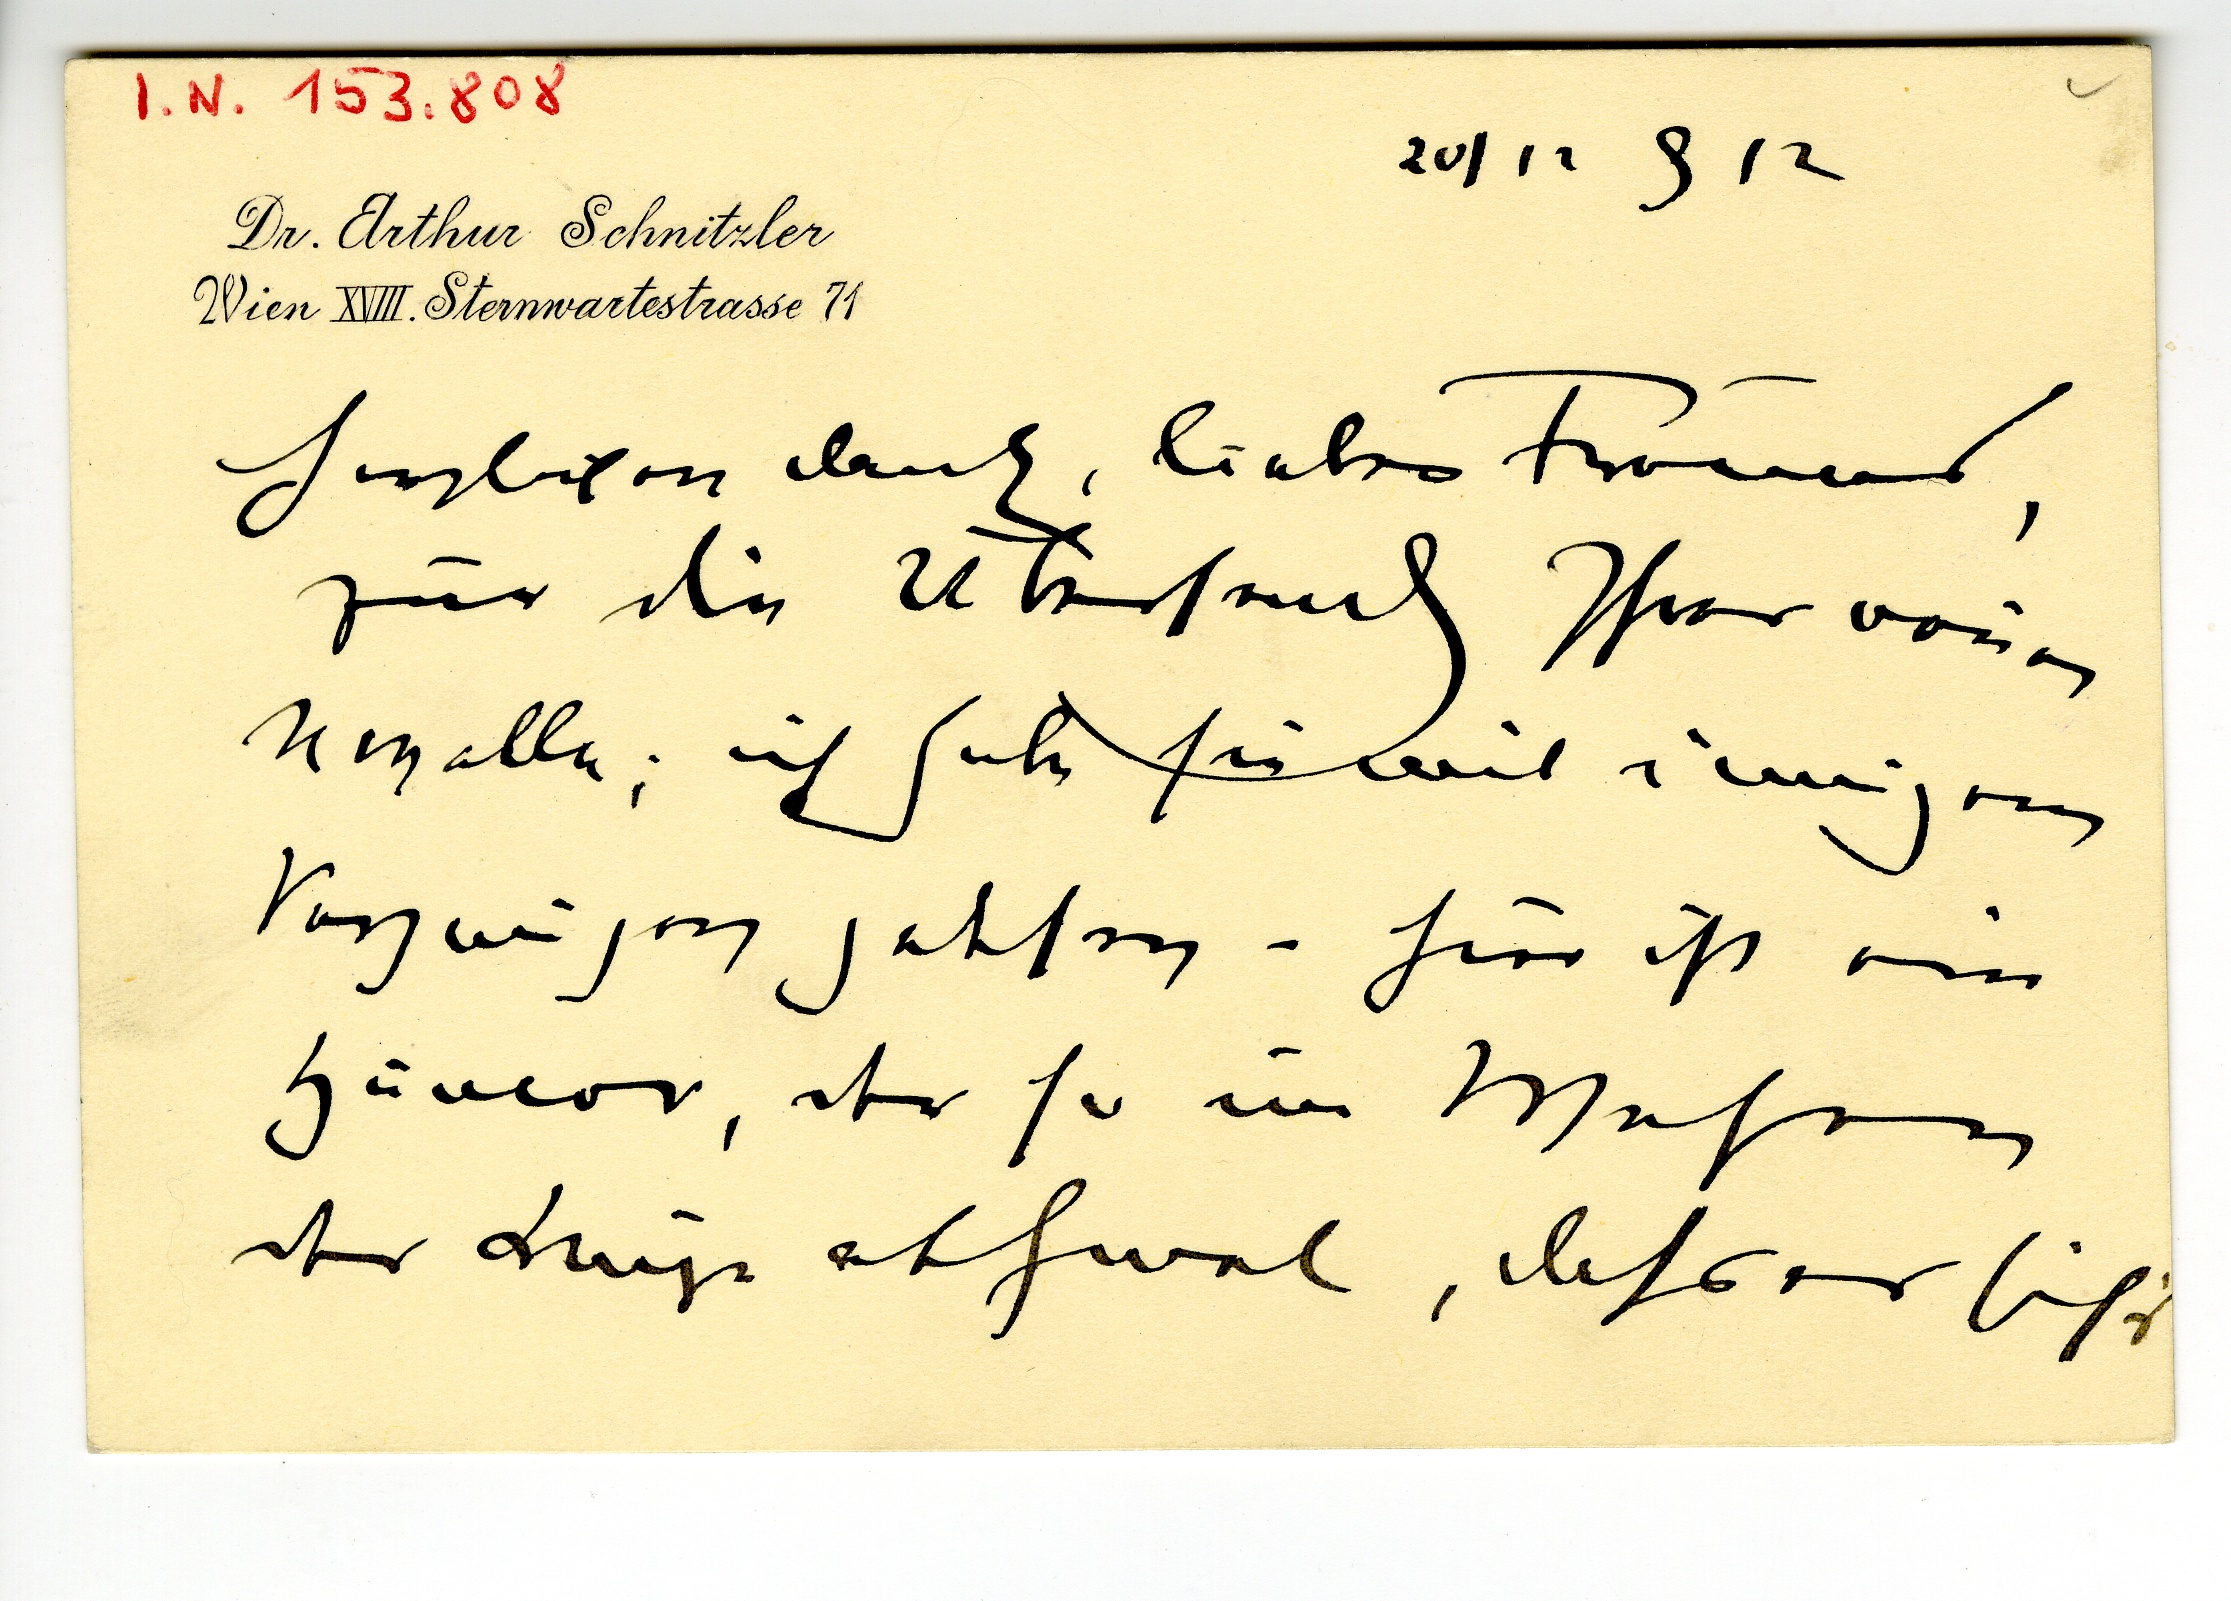 I.N. 153.808
20/12 912
Dr. Arthur Schnitzler
Wien XVIII. Sternwartestrasse 71
Herzlichen Dank, lieber Freund,
für die Übersendung Ihrer neuen
Novelle; ich habe sie mit innigem
Vergnügen gelesen – hier ist ein
Humor, der so im Wesen
der Dinge